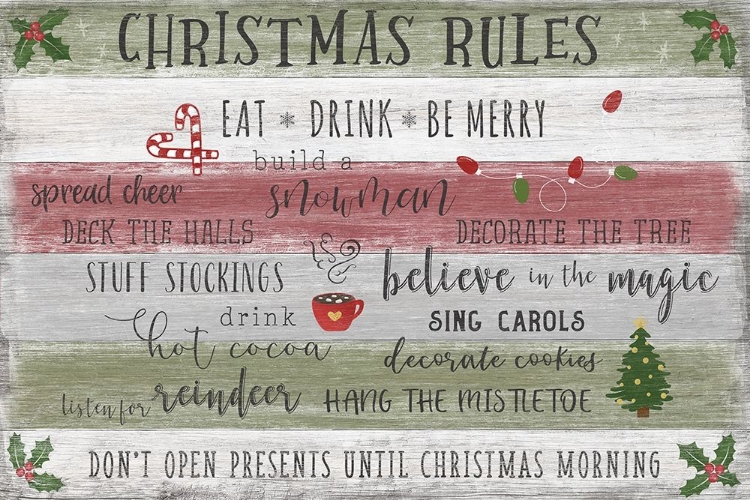 CHRISTMAS RULES
EAT * DRINK * BE MERRY
build a
spread cheer snowman
DECK THE HALLS DECORATE THE TREE
STUFF STOCKINGS believe in the magic
drink SING CAROLS
hot cocoa decorate cookies
listen for reindeer HANG THE MISTLETOE
DON'T OPEN PRESENTS UNTIL CHRISTMAS MORNING